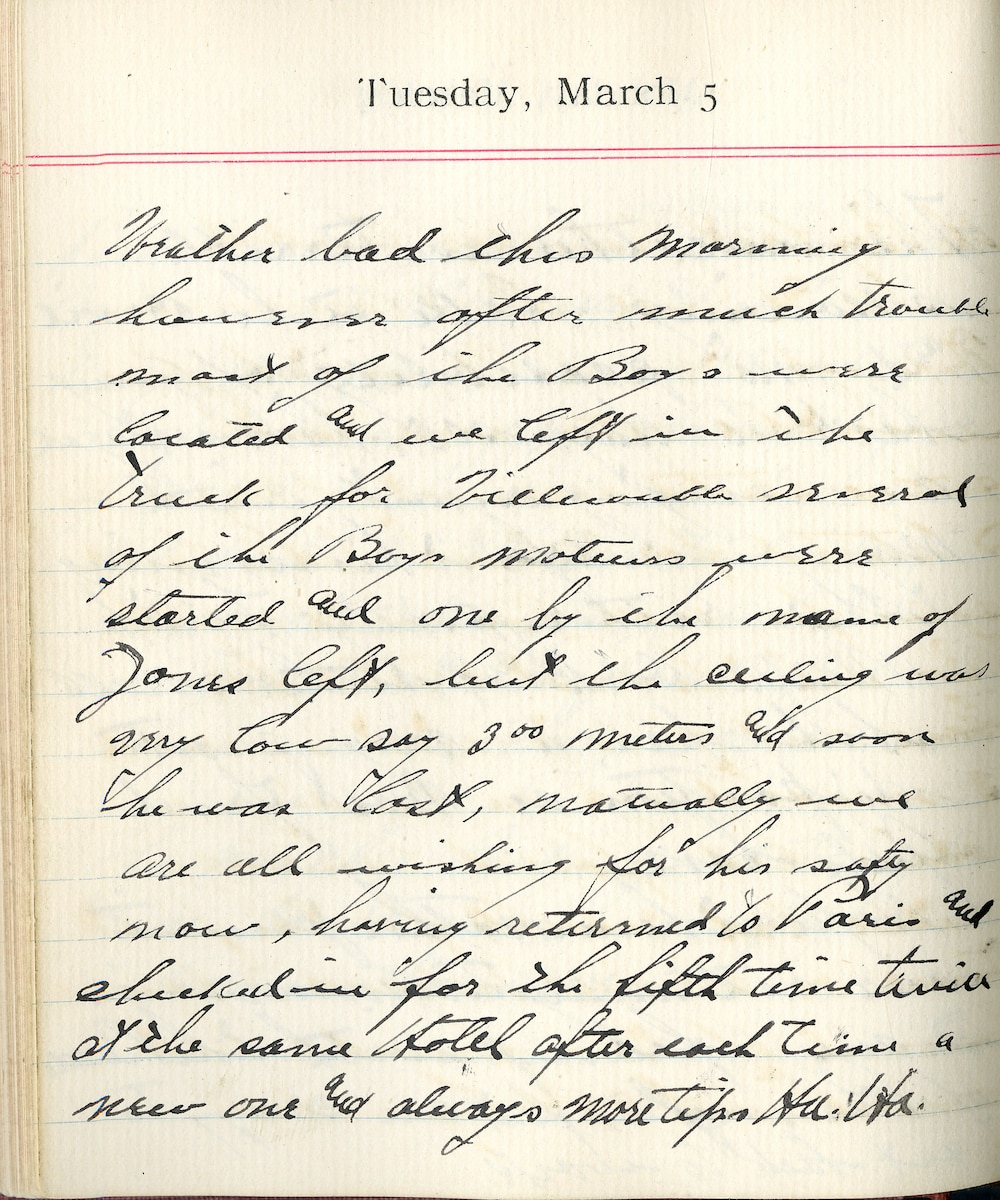 Tuesday, March 5
Weather bad this Morning
however after much trouble
most of the Boys were
located and we left in the
truck for several
of the Boys moteurs were
started and one by the name of
Jones left, but the ceiling was
very low say 300 meters and soon
he was lost, natually we
are all wishing for his safty
now, having returned to Paris and
checked-in for the fifth time twice
at the same Hotel after each time a
new one and always more tips Ha. Ha.